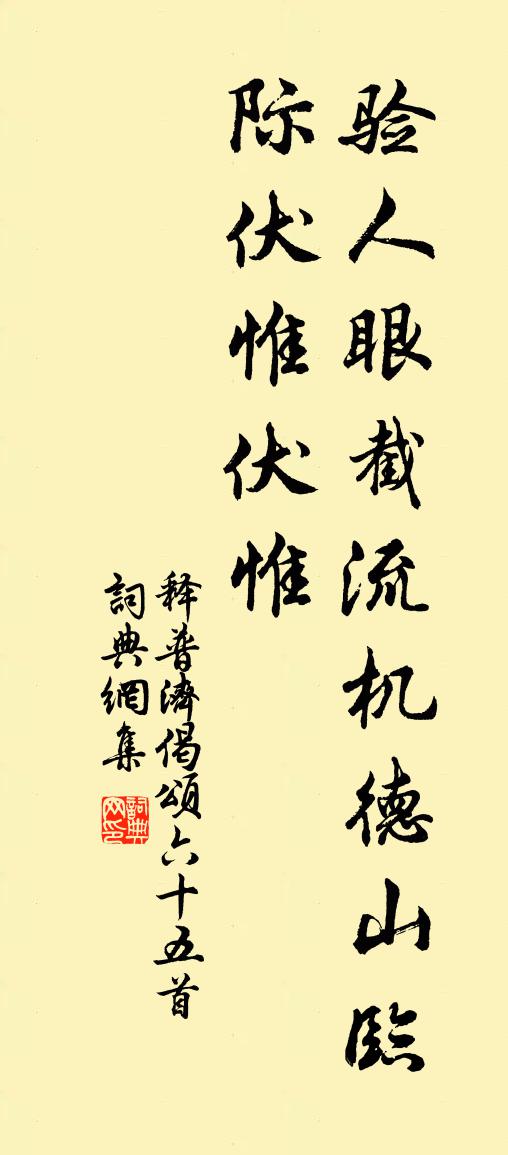 验人眼截流机德山临
际伏惟伏惟
释普濟偈頌六十五首
詞典網集
詞典网印